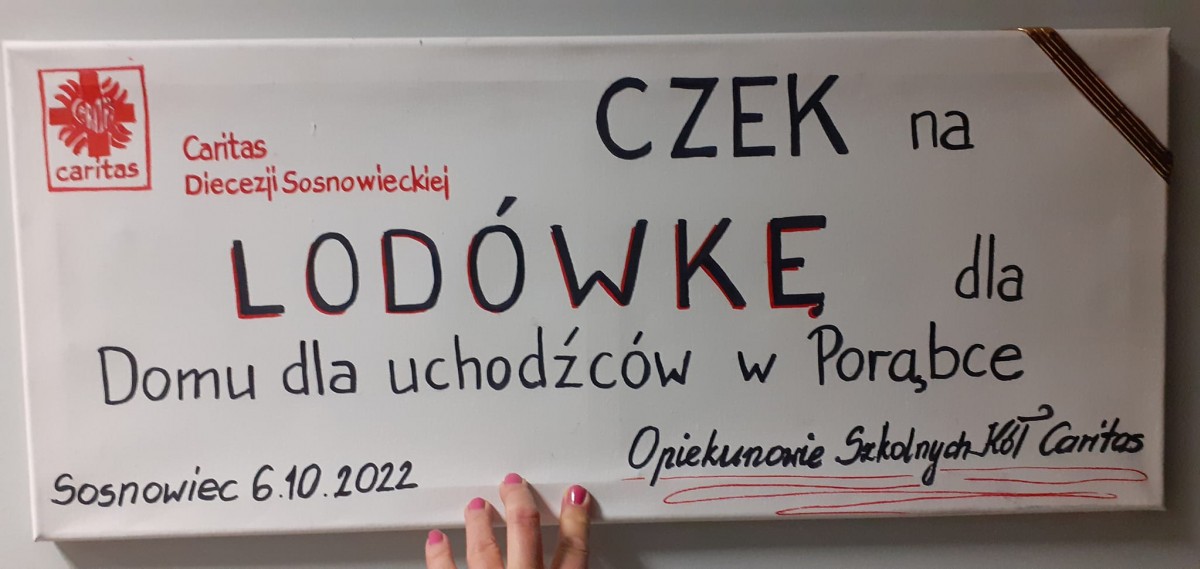 caritas
Caritas
Diecezji Sosnowieckiej
CZEK na
LODÓWKĘ dla
Domu dla uchodźców w Porąbce
Opiekunowie Szkolnych Kół Caritas
Sosnowiec 6.10.2022